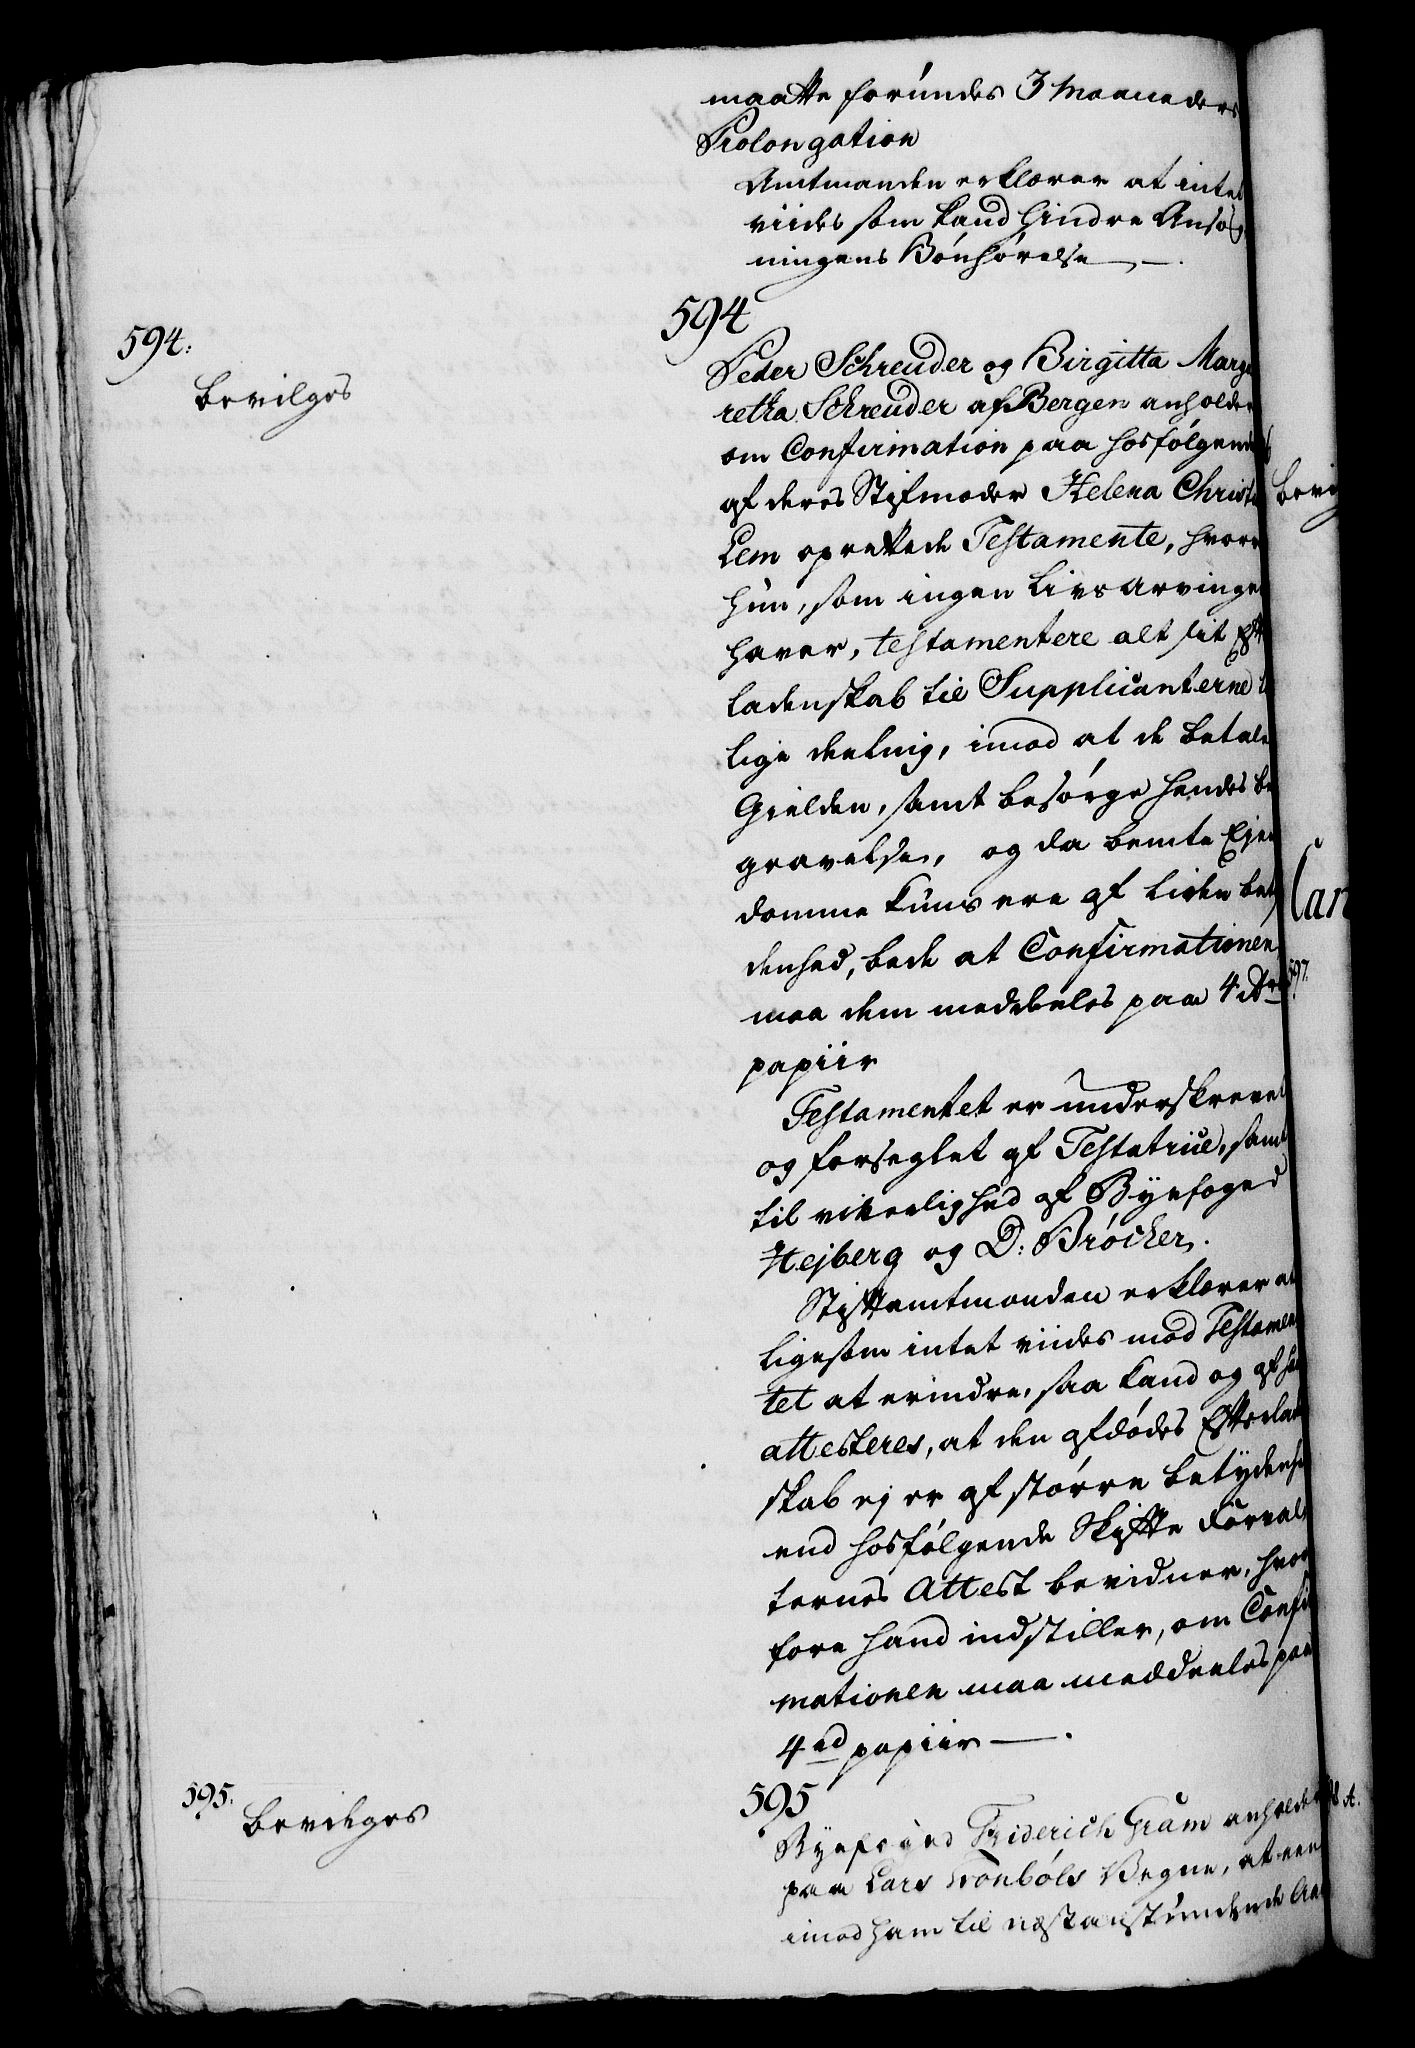 maatte forundes 3 Maaneders
Prolongation
Amtmanden erklærer at intet
viides som kand hindre Ansøg
ningens Bønhørelse —
594
594:
bevilges
Peder Schreuder og Birgitta Marga
retha Schreuder af Bergen anholder
om Confirmation paa hosfølgende
af deres Stifmoder Helena Christ
Lem oprettede Testamente, hvor
hun, som ingen Livs Arvinger
haver, testamentere alt sit Efter
ladenskab til Supplicanterne
lige deeling, imod at de betale
Gielden, samt besørge hendes be
gravelse, og da bemte Ejen
domme kuns ere af liden bety
denhed, bede at Confirmationen
maa dem meddeeles paa 4de
papiir
Testamentet er underskrevet
og forseglet af Testatrice, samt
til vitterlighed af Byefoged
Hejberg og D: Brøcker.
Stiftamtmanden erklærer at
ligesom intet viides mod Testamen
tet at erindre, saa kand og af
attesteres, at den afdødes Efterlad
skab ej er af større betydenhed
end hosfølgende Skifte Forval
ternes Attest bevidner, hvor
fore hand indstiller, om Confir
mationen maa meddeeles paa
4rd papiir —.
595
595.
bevilges
Byefoged Friderich Gram anholder
paa Lars Trønbøls Vegne, at een
imod ham til næstanstundende
bevi
Can
597.